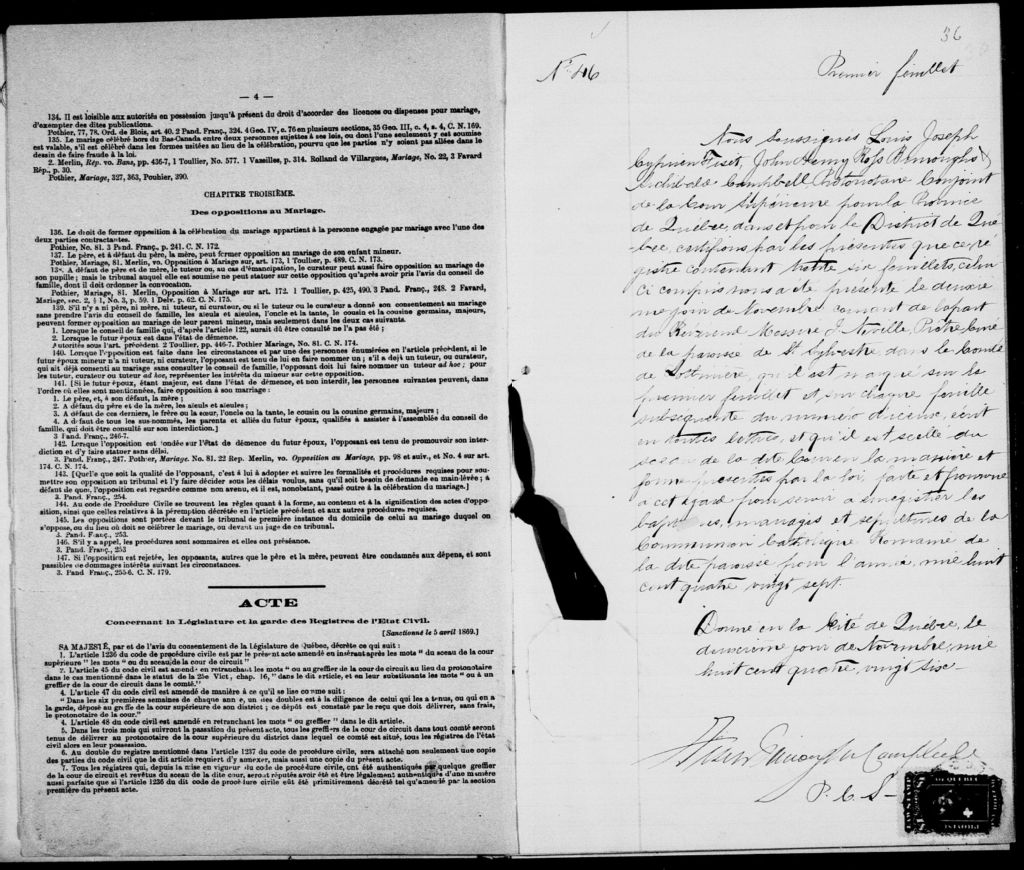 — 4 —
134. Il est loisible aux autorités en possession jusqu'à présent du droit d'accorder des licences ou dispenses pour mariage,
d'exempter des dites publications.
Pothier, 77, 78. Ord. de Blois, art. 40. 2 Pand. Franç., 324. 4 Geo. IV, c. 76 en plusieurs sections, 35 Geo. III, c. 4, s. 4, C. N. 169.
135. Le mariage célébré hors du Bas-Canada entre deux personnes sujettes à ses lois, ou dont l'une seulement y est soumise
est valable, s'il est célébré dans les formes usitées au lieu de la célébration, pourvu que les parties n'y soient pas allées dans le
dessin de faire fraude à la loi.
2. Merlin, Rép. vo. Bans, pp. 436-7, 1 Toullier, No. 577. 1 Vazeilles, p. 314. Rolland de Villargues, Mariage, No. 22, 3 Favard
Rép., p. 30.
Pothier, Mariage, 327, 363, Pouhier, 390.
CHAPITRE TROISIÈME.
Des oppositions au Mariage.
136. Le droit de former opposition à la célébration du mariage appartient à la personne engagée par mariage avec l'une des
deux parties contractantes.
Pothier, No. 81. 3 Pand. Franç., p. 241. C. N. 172.
137. Le père, et à défaut du père, la mère, peut former opposition au mariage de son enfant mineur.
Pothier, Mariage, 81. Merlin, vo. Opposition à Mariage sur, art. 173, 1 Toulber, p. 489. C. N. 173.
138. A défaut de père et de mère, le tuteur ou, au cas d'émancipation, le curateur peut aussi faire opposition au mariage de
son pupille; mais le tribunal auquel elle est soumise ne peut statuer sur cette opposition qu'après avoir pris l'avis du conseil de
famille, dont il doit ordonner la convocation.
Pothier, Mariage, 81. Merlin, Opposition à Mariage sur art. 172. 1 Toullier, p. 425, 490. 3 Pand. Franç., 248. 2 Favard,
Mariage, sec. 2, § 1, No. 3, p. 59. 1 Delv. p. 62. C. N. 175.
139. S'il n'y a ni père, ni mère, ni tuteur, ni curateur, ou si le tuteur ou le curateur a donné son consentement au mariage
sans prendre l'avis du conseil de famille, les aïeuls et aïeules, l'oncle et la tante, le cousin et la cousine germains, majeurs,
peuvent former opposition au mariage de leur parent mineur, mais seulement dans les deux cas suivants.
1. Lorsque le conseil de famille qui, d'après l'article 122, aurait dû être consulté ne l'a pas été;
2. Lorsque le futur époux est dans l'état de démence.
Autorités sous l'art. précédent 2 Toullier, pp. 446-7. Pothier Mariage, No. 81. C. N. 174.
140. Lorsque l'opposition est faite dans les circonstances et par une des personnes énumérées en l'article précédent, si le
futur époux mineur n'a ni tuteur, ni curateur, l'opposant est tenu de lui en faire nommer un; s'il a déjà un tuteur, ou curateur,
qui ait déjà consenti au mariage sans consulter le conseil de famille, l'opposant doit lui faire nommer un tuteur ad hoc; pour
les tuteur, curateur ou tuteur ad hoc, représenter les intérêts du mineur sur cette opposition.
141. [Si le futur époux, étant majeur, est dans l'état de démence, et non interdit, les personnes suivantes peuvent, dans
l'ordre où elles sont mentionnées, faire opposition à son mariage:
1. Le père, et, à son défaut, la mère;
2. A défaut du père et de la mère, les aïeuls et aïeules;
3. A défaut de ces derniers, le frère ou la sœur, l'oncle ou la tante, le cousin ou la cousine germains, majeurs;
4. A défaut de tous les sus-nommés, les parents et alliés du futur époux, qualifiés à assister à l'assemblée du conseil de
famille, qui doit être consulté sur son interdiction.]
3 Pand. Franç., 246-7.
142. Lorsque l'opposition est fondée sur l'état de démence du futur époux, l'opposant est tenu de promouvoir son inter-
diction et d'y faire statuer sans délai.
3. Pand. Franç., 247. Pothier, Mariage. No. 81. 22 Rep. Merlin, vo. Opposition au Mariage, pp. 98 et suiv., et No. 4 sur art.
174. C. N. 174.
143. [Quel'que soit la qualité de l'opposant, c'est à lui à adopter et suivre les formalités et procédures requises pour sou-
mettre son opposition au tribunal et l'y faire décider sous les délais voulus, sans qu'il soit besoin de demande en main-levée; à
défaut de quoi, l'opposition est regardée comme non avenu, et il est, nonobstant, passé outre à la célébration du mariage.]
3. Pand. Franç., 254.
144. Au code de Procédure Civile se trouvent les règles quant à la forme, au contenu et à la signification des actes d'oppo-
sition, ainsi que celles relatives à la péremption décrétée en l'article précédent et aux autres procédures requises.
145. Les oppositions sont portées devant le tribunal de première instance du domicile de celui au mariage duquel on
s'oppose, ou du lieu où doit se célébrer le mariage, ou devant un juge de ce tribunal.
3. Pand. Franç., 253.
146. S'il y a appel, les procédures sont sommaires et elles ont préséance.
3. Pand. Franç., 253
147. Si l'opposition est rejetée, les opposants, autres que le père et la mère, peuvent être condamnés aux dépens, et sont
passibles de dommages intérêts suivant les circonstances.
3. Pand Franç., 255-6. C. N. 179.
ACTE
Concernant la Législature et la garde des Registres de l'Etat Civil.
[Sanctionné le 5 avril 1869.]
SA MAJESTÉ, par et de l'avis du consentement de la Législature de Québec, décrète ce qui suit:
1. L'article 1236 du code de procédure civile est par le présent acte amendé en insérant après les mots " du sceau de la cour
supérieure " les mots " ou du sceau de la cour de circuit "
2. L'article 45 du code civil est amendé en retranchant les mots " ou au greffier de la cour de circuit au lieu du protonotaire
dans le cas mentionné dans le statut de la 25e Vict, chap. 16, " dans le dit article, et en leur substituants les mots " ou à un
greffier de la cour de circuit dans le comté."
4. L'article 47 du code civil est amendé de manière à ce qu'il se lise comme suit:
" Dans les six premières semaines de chaque année, un des doubles est à la diligence de celui qui les a tenus, ou qui en a
la garde, déposé au greffe de la cour supérieure de son district; ce dépôt est constaté par le reçu que doit délivrer, sans frais,
le protonotaire de la cour."
4. L'article 48 du code civil est amendé en retranchant les mots " ou greffier " dans le dit article.
5. Dans les trois mois qui suivront la passation du présent acte, tous les greffiers de la cour de circuit dans tout comté seront
tenus de délivrer au protonotaire de la cour supérieure du district dans lequel ce comté est situé, tous les régistres de l'état
civil alors en leur possession.
6. Au double du registre mentionné dans l'article 1237 du code de procédure civile, sera attaché non seulement une copie
des parties du code civil que le dit article requiert d'y annexer, mais aussi une copie du présent acte.
7. Tous les régistres qui, depuis la mise en vigueur du code de procédure civile, ont été authentiqués par quelque greffier
de la cour de circuit et revêtus du sceau de la dite cour, seront réputés avoir été et être légalement authentiqués d'une manière
aussi parfaite que si l'article 1236 du dit code de procédure civile eût été primitivement décrété tel qu'amendé par la section
première du présent acte.
36
No. 46
Premier feuillet
Nous soussignés Louis Joseph
Cyprien Fiset, John Henry Ross Burroughs
Archibald Campbell, Protonotaire Conjoint
de la Cour Supérieure pour la Province
de Québec, dans et pour le District de Qué
bec certifions par les présentes que ce ré
gistre contenant trente six feuillets, celui
ci compris nous a été présenté le deuxiè
me jour de Novembre courant de la part
du Révérend Messire J. Neville, Prêtre Curé
de la paroisse de St Sylvestre, dans le Comté
de Lotbinière, qu'il est marqué sur le
premier feuillet et sur chaque feuille
subséquente du numéro d'icelle, écrit
en toutes lettres, et qu'il est scellé du
sceau de la dite Cour en la manière et
forme prescrites par la loi, faite et pourvue
à cet égard pour servir à enregistrer les
baptêmes, mariages et sépultures de la
Communion Catholique Romaine de
la dite paroisse pour l'année mil huit
cent quatre vingt sept.
Donné en la Cité de Québec, le
deuxième jour de Novembre, mil
huit cent quatre vingt six -
Fiset Burroughs Campbell
P. C. S -
LAW STAMP
QUEBEC